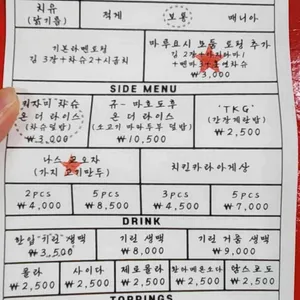 치유
(닭기름)
적게
보통
매니아
기본라멘토핑
김 3장+차슈2+시금치
마루요시 모듬 토핑 추가
₩3,000
SIDE MENU
차슈
온 더 라이스
(차슈덮밥)
₩3,000
규-마호도후
온 더 라이스
(소고기 마파두부 덮밥)
₩10,500
"TKG"
(간장계란밥)
₩2,500
나스 교자
(가지 고기만두)
치킨카라아게상
2pcs
₩4,000
5pcs
₩8,500
3pcs
₩4,500
5pcs
₩7,000
DRINK
한입"기린"생맥
₩3,500
기린 생맥
₩8,000
기린 거품 생맥
₩9,000
콜라
₩2,500
사이다
₩2,500
제로콜라
₩2,500
환타메론소다
₩2,500
닥스코도
₩2,500
TOPPINGS